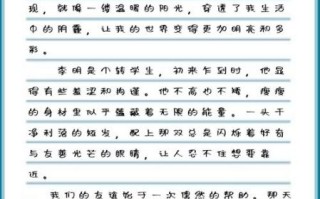 现，就像一缕温暖的阳光，穿透了我生活
巾的阴霾，让我的世界变得更加明亮和多
彩。
李明是个转学生，初来乍到时，他显
得有些羞涩和拘谨。他不高也不矮，瘦瘦
的身材里似乎蕴藏着无限的能量。一头干
净利落的短发，配上那双总是闪烁着好奇
与友善光芒的眼睛，让人忍不住想要靠
近。
我们的友谊始于一次偶然的帮助。那天